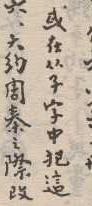 或在从子字中把這
大约周秦之際改